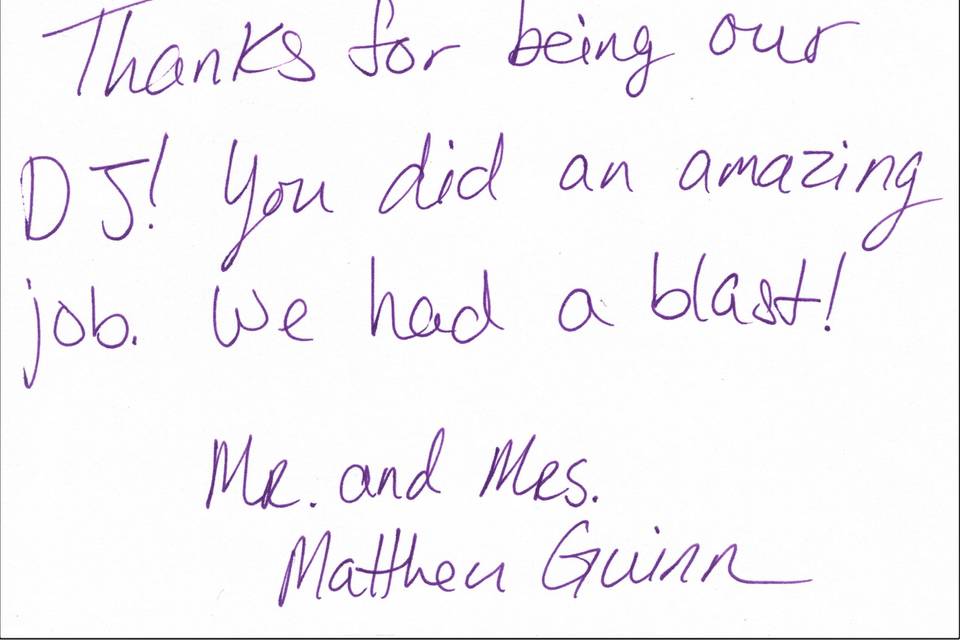 Thanks for being our
DJ! You did an amazing
job. We had a blast!
Mr. and Mrs.
Matthew Guinn